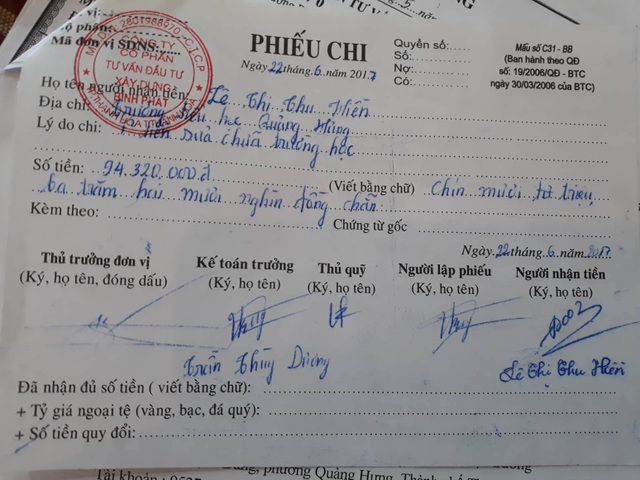 Mã đơn vị SDNS:
M.S.D.N: 2801988970 - C.T.C.P
CÔNG TY
CỔ PHẦN
TƯ VẤN ĐẦU TƯ
XÂY DỰNG
BÌNH PHÁT
PHIẾU CHI
Ngày 22 tháng 6 năm 2017
Quyển số:
Số:
Nợ:
Có:
Mẫu số C31 - BB
(Ban hành theo QĐ
số: 19/2006/QĐ - BTC
ngày 30/03/2006 của BTC)
Họ tên người nhận tiền: Lê Thị Thu Hiền
Địa chỉ: Trường tiểu học Quảng Hưng
Lý do chi: Tiền sửa chữa trường học
Số tiền: 94.320.000.đ (Viết bằng chữ) Chín mươi tư triệu
ba trăm hai mươi nghìn đồng chẵn
Kèm theo: Chứng từ gốc
Ngày 22 tháng 6 năm 2017
Thủ trưởng đơn vị Kế toán trưởng Thủ quỹ Người lập phiếu Người nhận tiền
(Ký, họ tên, đóng dấu) (Ký, họ tên) (Ký, họ tên) (Ký, họ tên) (Ký, họ tên)
Trần Thùy Dương Lê Thị Thu Hiền
Đã nhận đủ số tiền ( viết bằng chữ):
+ Tỷ giá ngoại tệ (vàng, bạc, đá quý):
+ Số tiền quy đổi:
phường Quảng Hưng, Thành
Tài khoản :